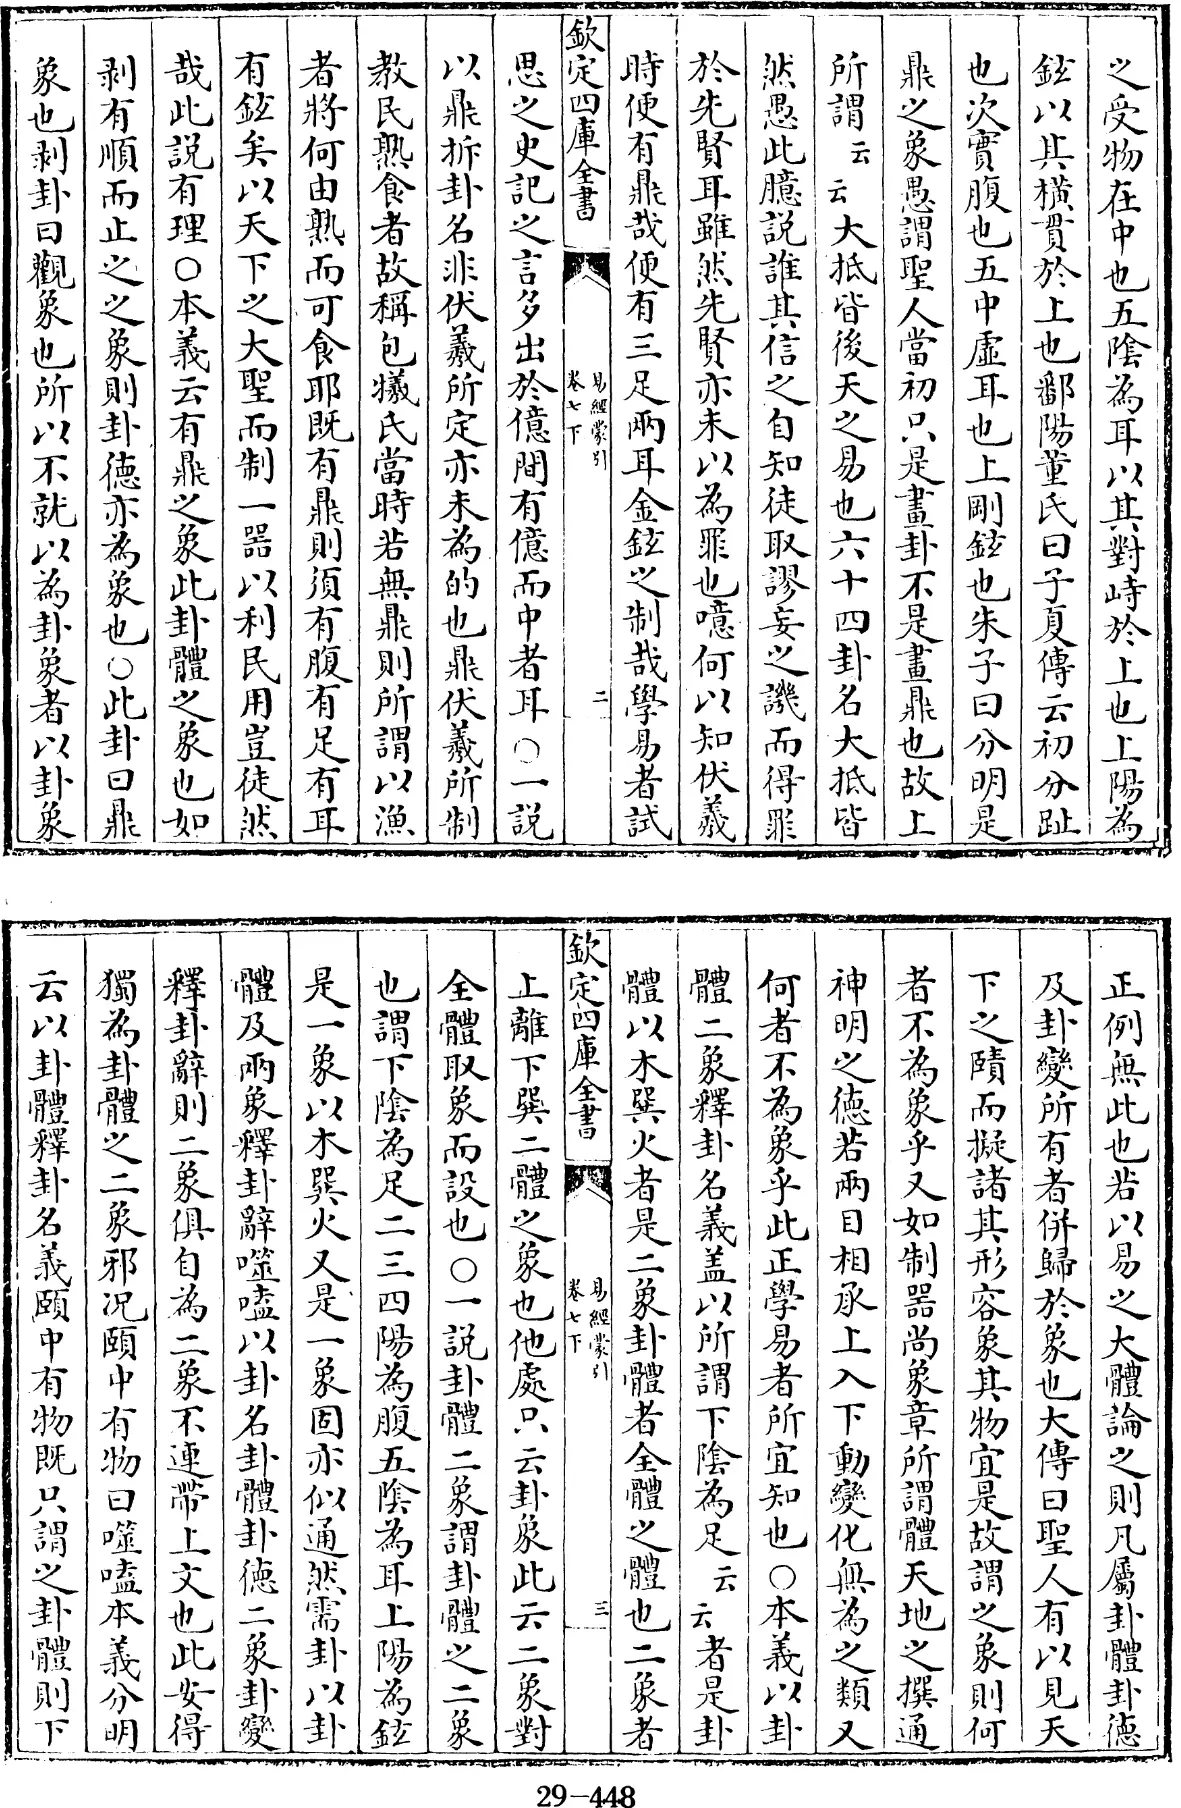 之受物在中也五陰為耳以其對峙於上也上陽為
鉉以其橫貫於上也鄱陽董氏曰子夏傳云初分趾
也次實腹也五中虛耳也上剛鉉也朱子曰分明是
鼎之象愚謂聖人當初只是畫卦不是畫鼎也故上
所謂云云大抵皆後天之易也六十四卦名大抵皆
然愚此臆說誰其信之自知徒取謬妄之譏而得罪
於先賢耳雖然先賢亦未以為罪也噫何以知伏羲
時便有鼎哉便有三足兩耳金鉉之制哉學易者試
欽定四庫全書
易經蒙引
卷七下
二
思之史記之言多出於億間有億而中者耳○一說
以鼎拆卦名非伏羲所定亦未為的也鼎伏羲所制
教民熟食者故稱包犧氏當時若無鼎則所謂以漁
者將何由熟而可食耶既有鼎則須有腹有足有耳
有鉉矣以天下之大聖而制一噐以利民用豈徒然
哉此説有理○本義云有鼎之象此卦體之象也如
剥有順而止之之象則卦德亦為象也○此卦曰鼎
象也剥卦曰觀象也所以不就以為卦象者以卦象
正例無此也若以易之大體論之則凡屬卦體卦德
及卦變所有者併歸於象也大傳曰聖人有以見天
下之賾而擬諸其形容象其物宜是故謂之象則何
者不為象乎又如制器尚象章所謂體天地之撰通
神明之德若兩目相承上入下動變化無為之類又
何者不為象乎此正學易者所宜知也○本義以卦
體二象釋卦名義蓋以所謂下陰為足云云者是卦
體以木巽火者是二象卦體者全體之體也二象者
欽定四庫全書
易經蒙引
卷七下
三
上離下巽二體之象也他處只云卦象此云二象對
全體取象而設也○一說卦體二象謂卦體之二象
也謂下陰為足二三四陽為腹五陰為耳上陽為鉉
是一象以木巽火又是一象固亦似通然需卦以卦
體及兩象釋卦辭噬嗑以卦名卦體卦德二象卦變
釋卦辭則二象俱自為二象不連帶上文也此安得
獨為卦體之二象邪況頤中有物曰噬嗑本義分明
云以卦體釋卦名義頤中有物既只謂之卦體則下
29-448